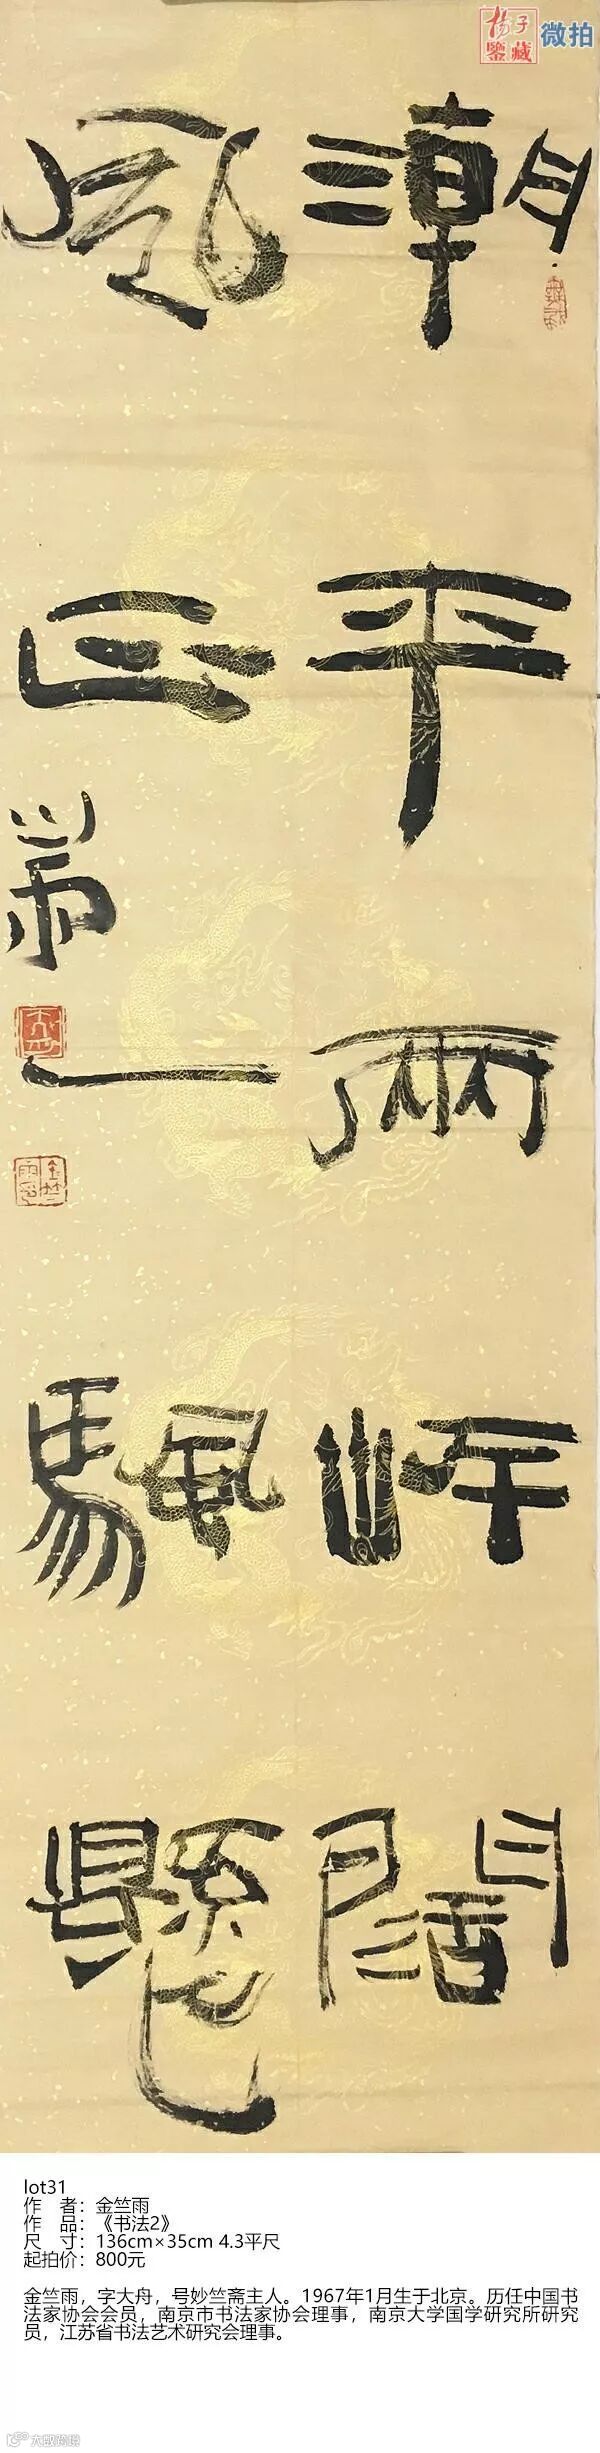 揚子
鑒藏
微拍
潮平兩岸闊
風正一颿懸
金竺雨印
lot31
作 者：金竺雨
作 品：《书法2》
尺 寸：136cm×35cm 4.3平尺
起拍价：800元
金竺雨，字大舟，号妙竺斋主人。1967年1月生于北京。历任中国书
法家协会会员，南京市书法家协会理事，南京大学国学研究所研究
员，江苏省书法艺术研究会理事。